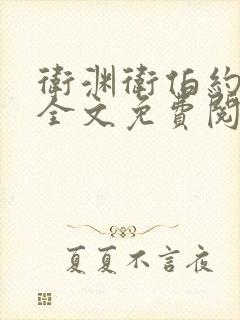 衛渊衛伯約
全文免費閱
夏夏不言夜